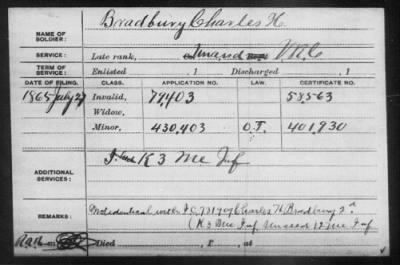 Bradbury Charles H.
NAME OF SOLDIER:
SERVICE: Late rank, Unasnd V.R.C.
TERM OF SERVICE: Enlisted , 1 Discharged , 1
DATE OF FILING. CLASS. APPLICATION NO. LAW. CERTIFICATE NO.
1865 July 27 Invalid, 74,403 58,563
Widow,
Minor, 430,403 O.I. 401,930
ADDITIONAL SERVICES: K 3 Me Inf
REMARKS: Not identical with I.C. Charles H. Bradbury 2d
(K 3 Me Inf Unassd 17 Me Inf
Died , 1 , at